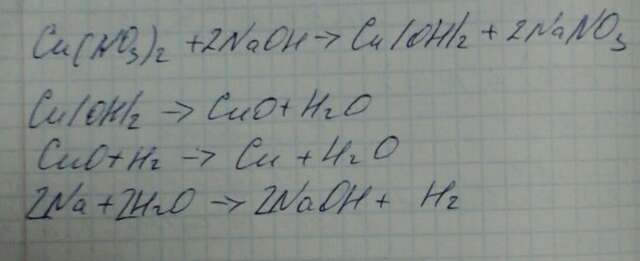 Cu(NO3)2 + 2NaOH → Cu(OH)2 + 2NaNO3
Cu(OH)2 → CuO + H2O
CuO + H2 → Cu + H2O
2Na + 2H2O → 2NaOH + H2